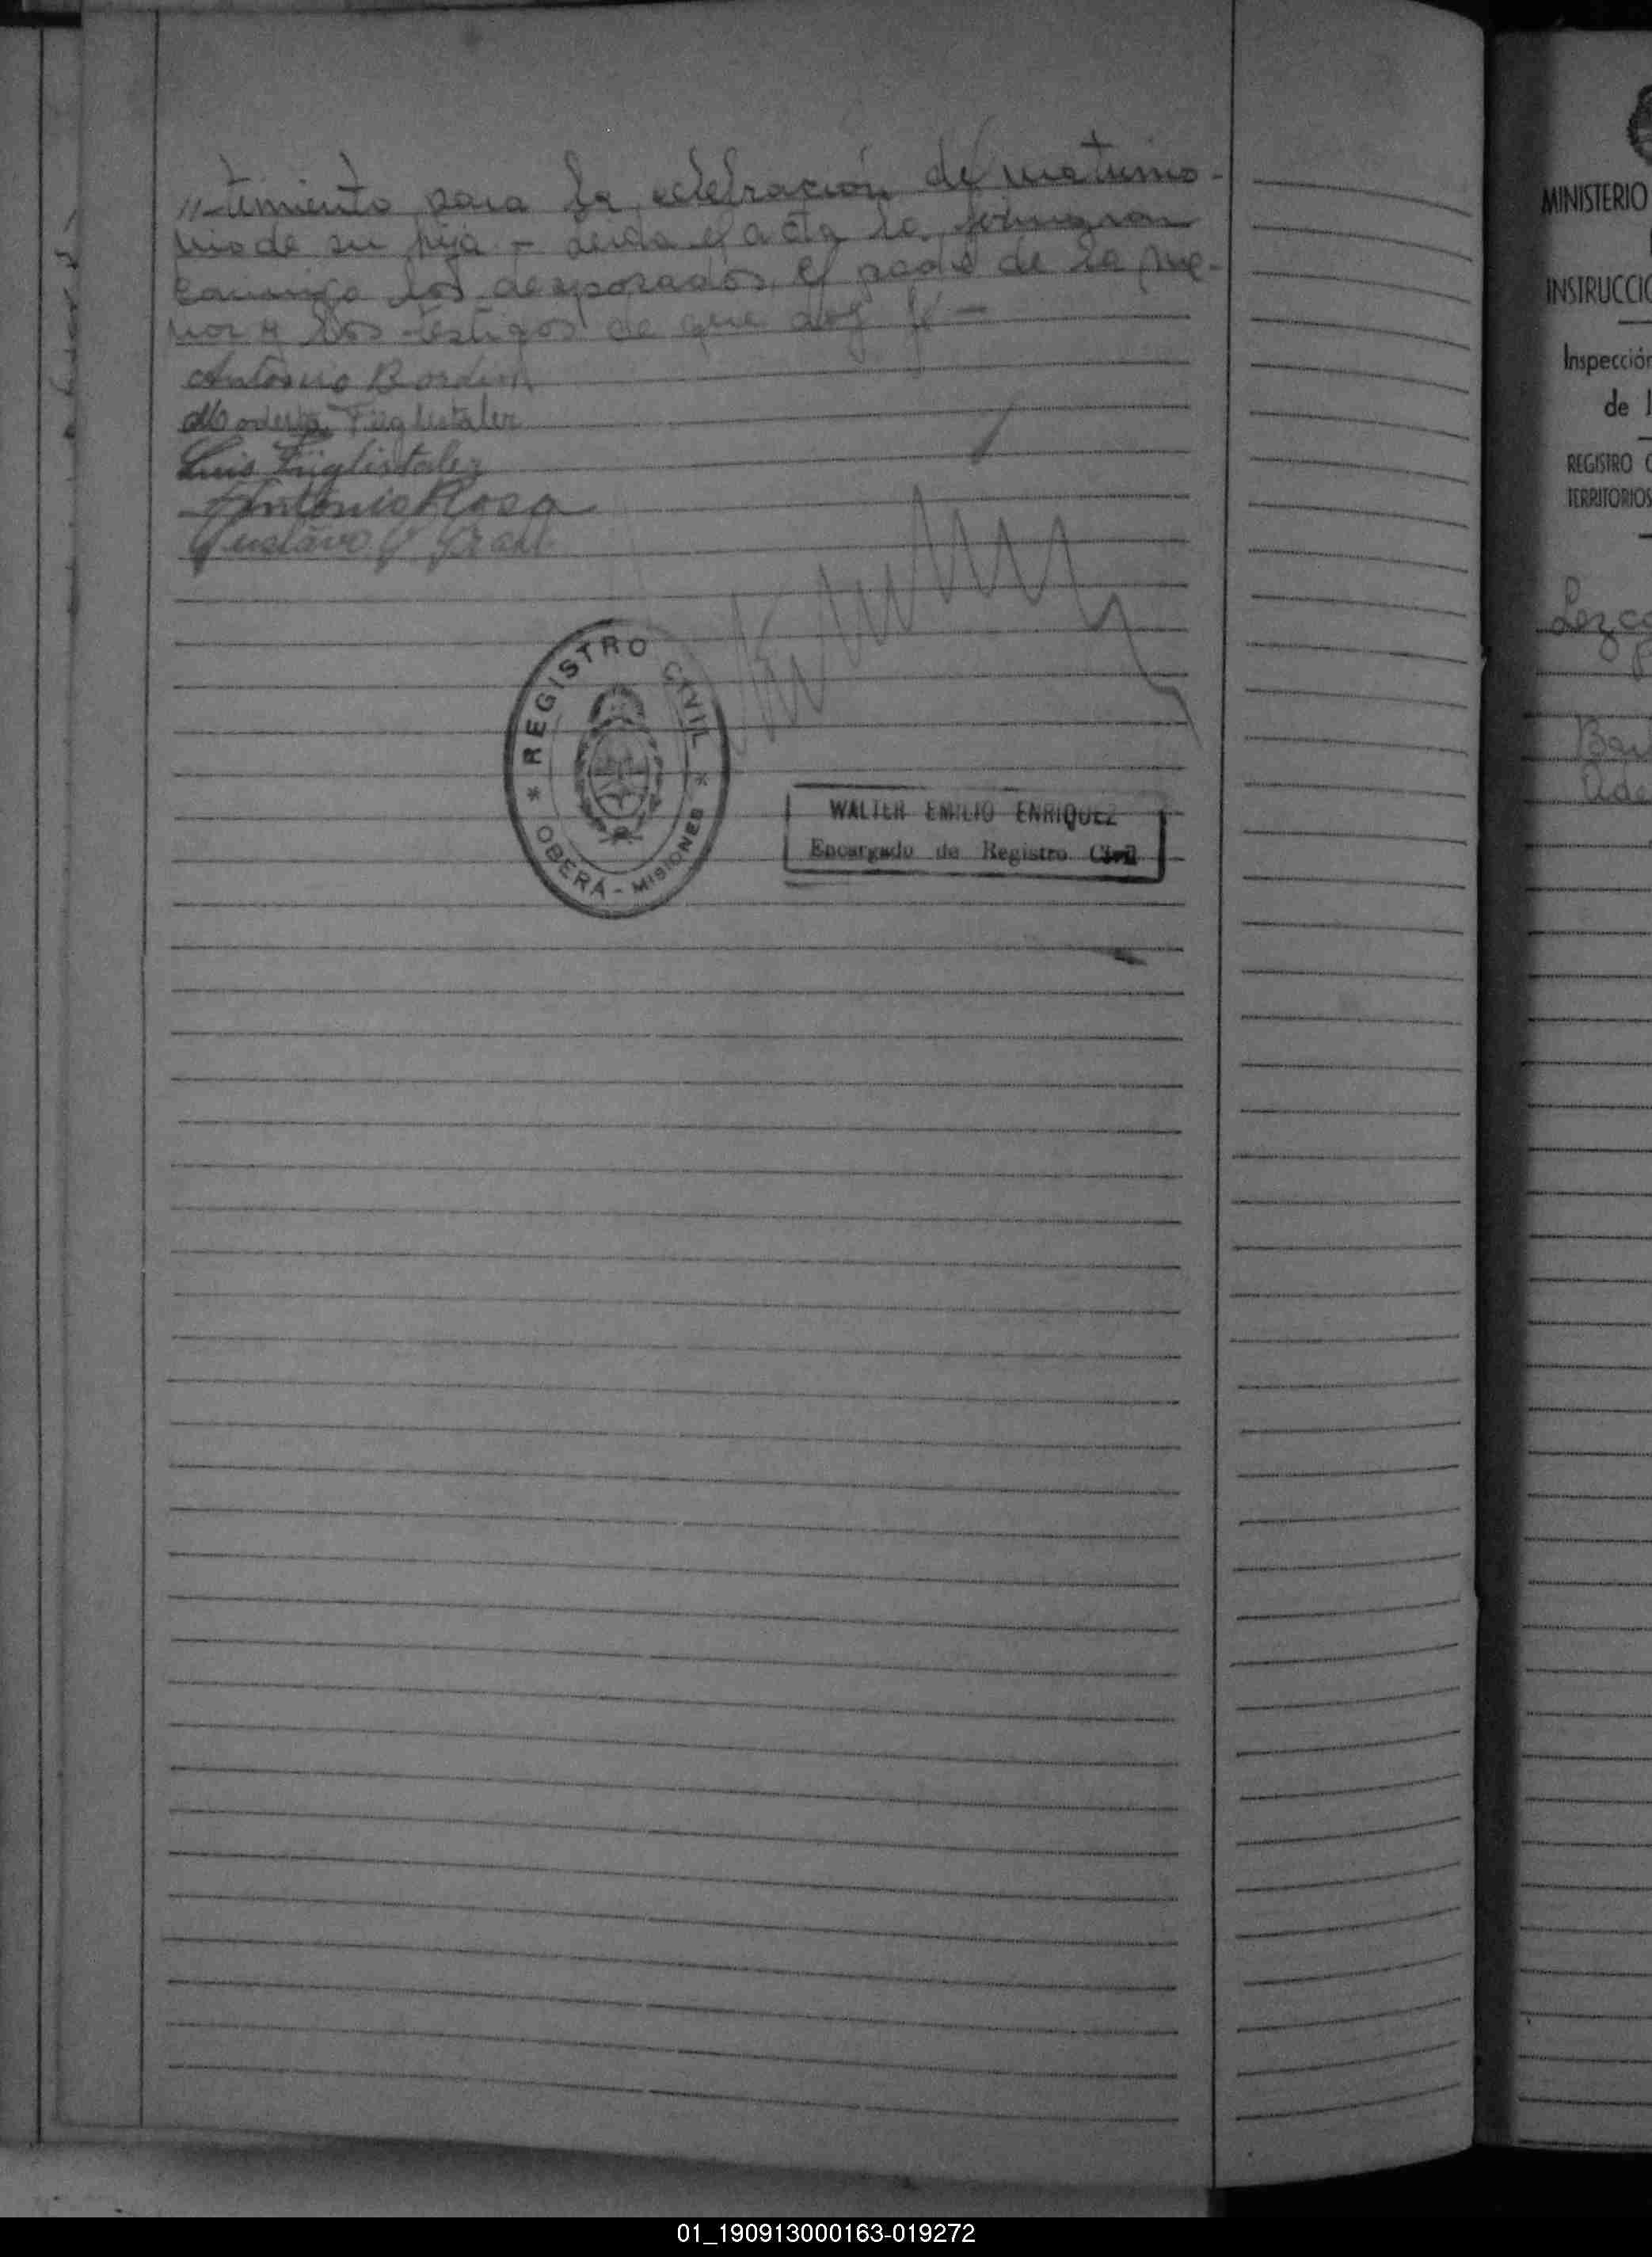 "timiento para la celebración de matrimo-
nio de su hija - Leida el acta la firmaron
conmigo los desposados, el padre de la me-
nor y los testigos de que doy fé -
Antonio Bordin
Modesta Füglistaler
Luis Füglistaler
Antonio Rosa
Gustavo
* REGISTRO CIVIL *
OBERÁ - MISIONES
WALTER EMILIO ENRIQUEZ
Encargado de Registro Civil
MINISTERIO
INSTRUCCIO
Inspección
de
REGISTRO C
TERRITORIOS
Lezc
Ade
01_190913000163-019272